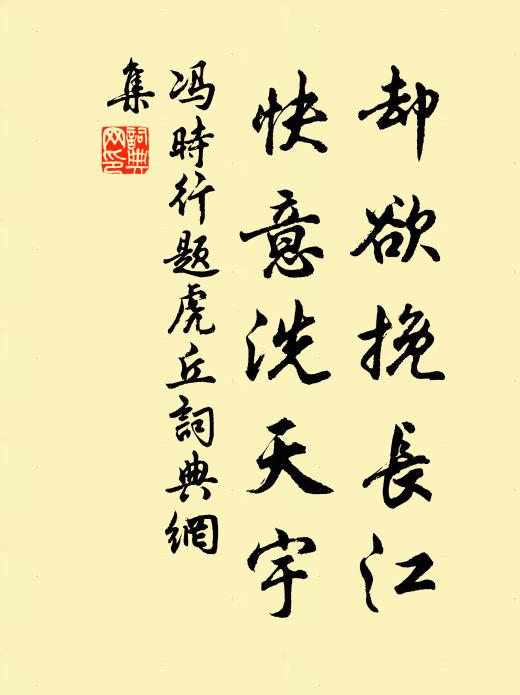 却欲挽長江
快意洗天宇
馮時行題虎丘詞典網
集
詞典
网印